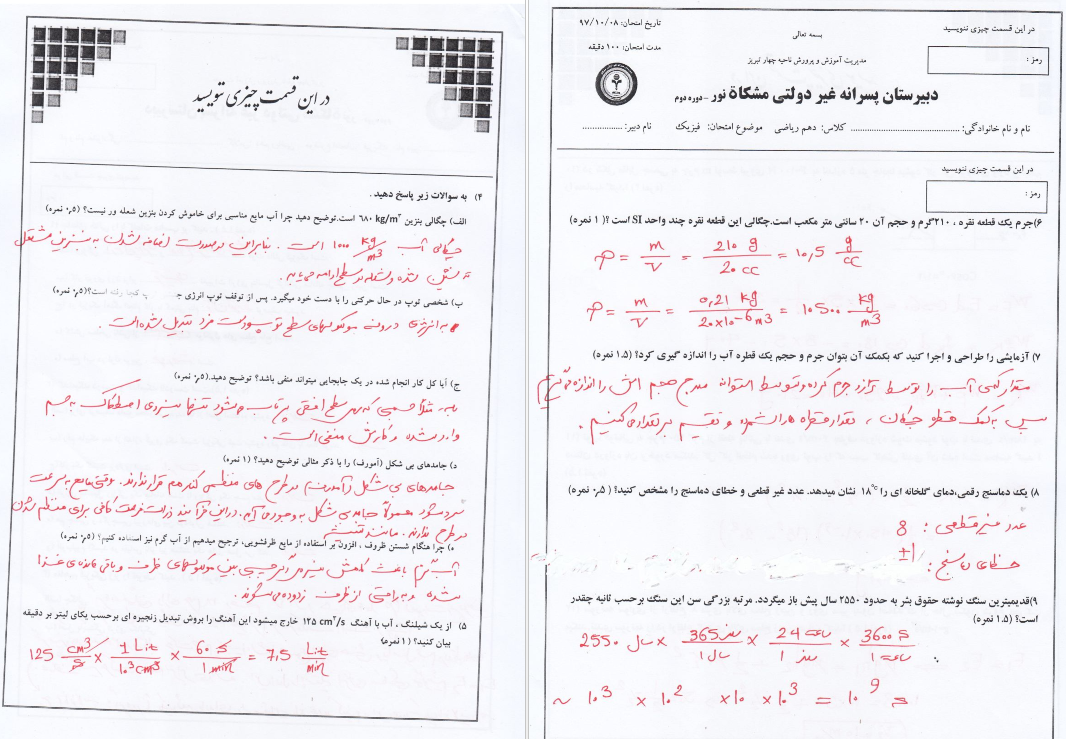 در این قسمت چیزی ننویسید
رمز :
بسمه تعالی
مدیریت آموزش و پرورش ناحیه چهار تبریز
دبیرستان پسرانه غیر دولتی مشکاة نور – دوره دوم
تاریخ امتحان: ۹۷/۱۰/۰۸
مدت امتحان: ۱۰۰ دقیقه
نام و نام خانوادگی: ............ کلاس: دهم ریاضی موضوع امتحان: فیزیک نام دبیر: ............
در این قسمت چیزی ننویسید
رمز :
۶)جرم یک قطعه نقره ، ۲۱۰گرم و حجم آن ۲۰ سانتی متر مکعب است.چگالی این قطعه نقره چند واحد SI است ؟( ۱ نمره)
ρ = m/V = 210 g / 20 cc = 10,5 g/cc
ρ = m/V = 0,21 kg / 20×10⁻⁶ m3 = 10500 kg/m3
۷) آزمایشی را طراحی و اجرا کنید که بکمک آن بتوان جرم و حجم یک قطره آب را اندازه گیری کرد؟ (۱.۵ نمره)
مقدار کمی آب را توسط ترازو جرم کرده و توسط استوانه مدرج حجم اش را اندازه
سپس به کمک قطره چکان ، تعداد قطره ها را شمرده و تقسیم بر تعداد می کنیم .
۸) یک دماسنج رقمی،دمای گلخانه ای را ۱۸°C نشان میدهد. عدد غیر قطعی و خطای دماسنج را مشخص کنید؟ ( ۰٫۵ نمره)
عدد غیر قطعی : 8
خطای دماسنج : ±1
۹)قدیمیترین سنگ نوشته حقوق بشر به حدود 2550 سال پیش باز میگردد. مرتبه بزرگی سن این سنگ برحسب ثانیه چقدر
است؟ (۱.۵ نمره)
2550 سال × 365 روز / 1 سال × 24 ساعت / 1 روز × 3600 s / 1 ساعت
~ 10³ × 10² × 10 × 10³ = 10⁹ s
در این قسمت چیزی ننویسید
۴) به سوالات زیر پاسخ دهید .
الف) چگالی بنزین ۶۸۰ kg/m³ است.توضیح دهید چرا آب مایع مناسبی برای خاموش کردن بنزین شعله ور نیست؟ (۰٫۵ نمره)
چگالی آب 1000 kg/m3 است . بنابراین در صورت اضافه شدن به بنزین مشتعل
ته نشین شده و شعله در سطح ادامه
ب) شخصی توپ در حال حرکتی را با دست خود میگیرد. پس از توقف توپ انرژی کجا رفته است؟(۰٫۵ نمره)
به انرژی درونی مولکولهای سطح توپ و دست فرد تبدیل شده است .
ج) آیا کل کار انجام شده در یک جابجایی میتواند منفی باشد؟ توضیح دهید.(۰٫۵ نمره)
بله مثلا جسمی که بر سطح افقی پرتاب میشود تنها نیروی اصطکاک به جسم
وارد شده و کارش منفی است .
د) جامدهای بی شکل (آمورف) را با ذکر مثالی توضیح دهید؟ (۱ نمره)
جامدهای بی شکل (آمورف) در طرح های منظمی کنار هم قرار ندارند . وقتی مایع به سرعت
سرد شود معمولا جامد بی شکل به وجود می آید. در این فرآیند ذرات فرصت کافی برای منظم شدن
در طرح ندارند. مانند شیشه
ه) چرا هنگام شستن ظروف ، افزون بر استفاده از مایع ظرفشویی، ترجیح میدهیم از آب گرم نیز استفاده کنیم؟ (۰٫۵ نمره)
آب گرم باعث کاهش نیروی دگرچسبی بین مولکولهای ظرف و باقی مانده ی غذا
شده و به راحتی از ظرف زدوده می شوند .
۵) از یک شیلنگ ، آب با آهنگ ۱۲۵ cm³/s خارج میشود این آهنگ را بروش تبدیل زنجیره ای برحسب یکای لیتر بر دقیقه
بیان کنید؟ ( ۱ نمره)
125 cm3/s × 1 Lit / 10³ cm³ × 60 s / 1 min = 7,5 Lit/min